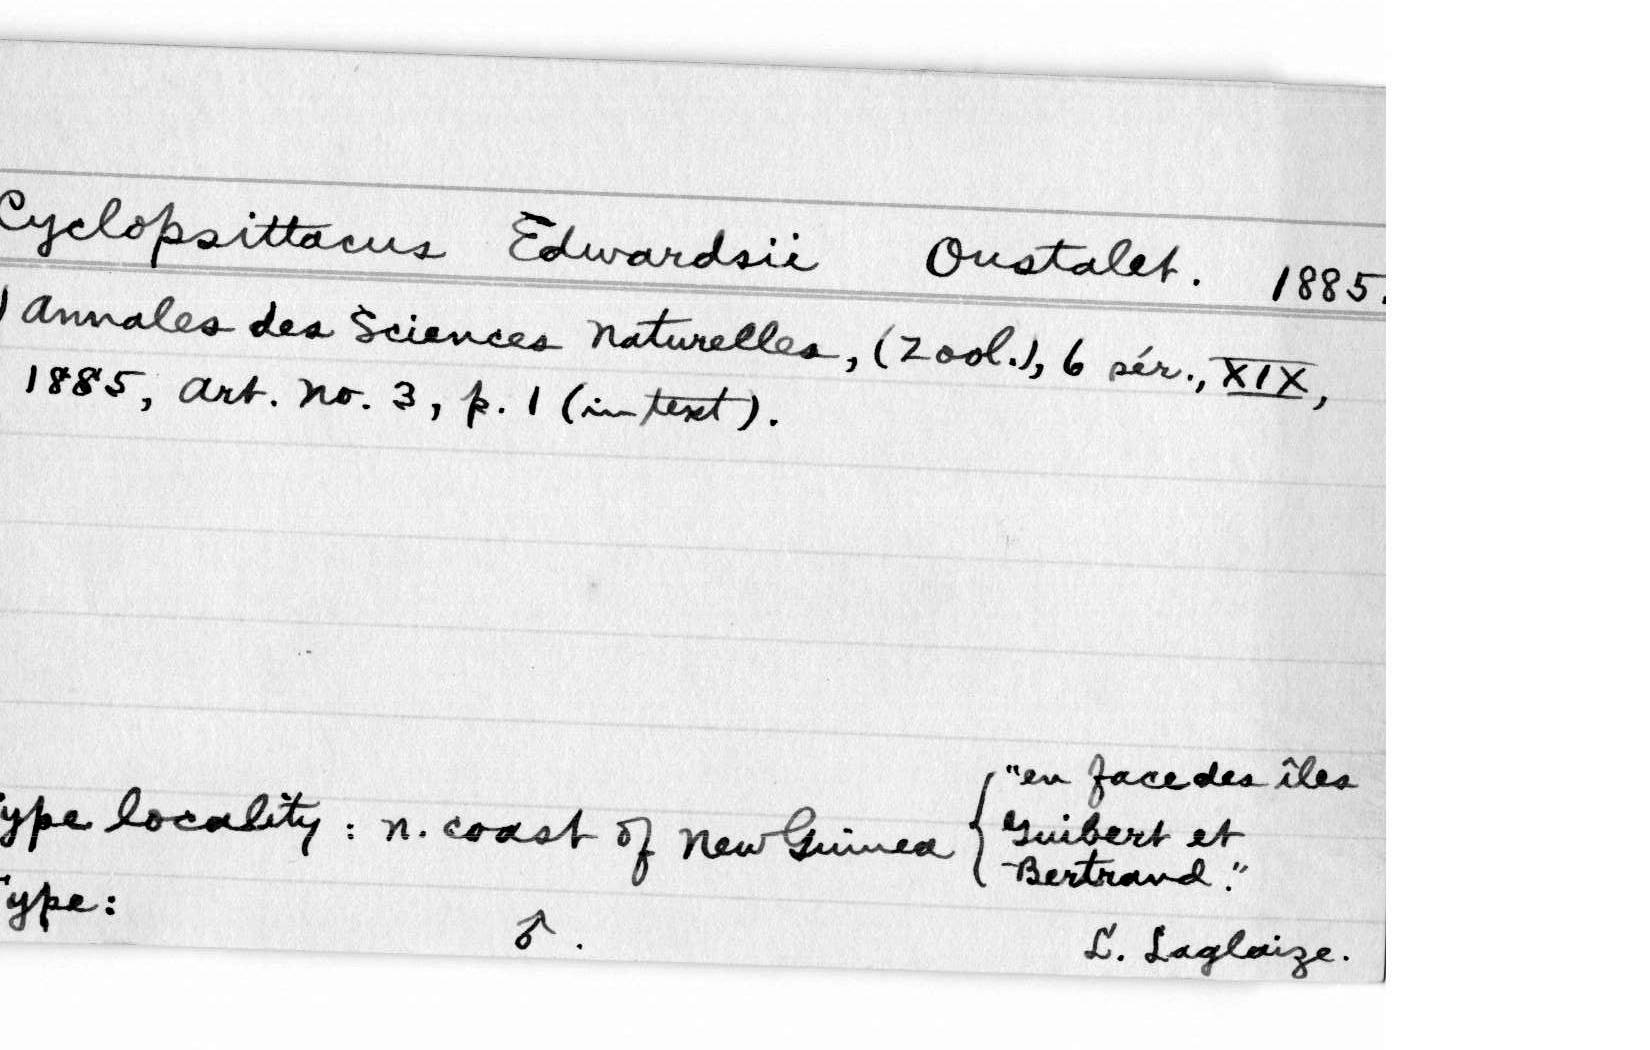 Cyclopsittacus Edwardsii Oustalet. 1885.
) Annales des Sciences Naturelles, (Zool.), 6 sér., XIX,
1885, Art. No. 3, p. 1 (in text).
ype locality: n. coast of New Guinea { "en face des îles
Guibert et
Bertrand."
ype: ♂. L. Laglaize.